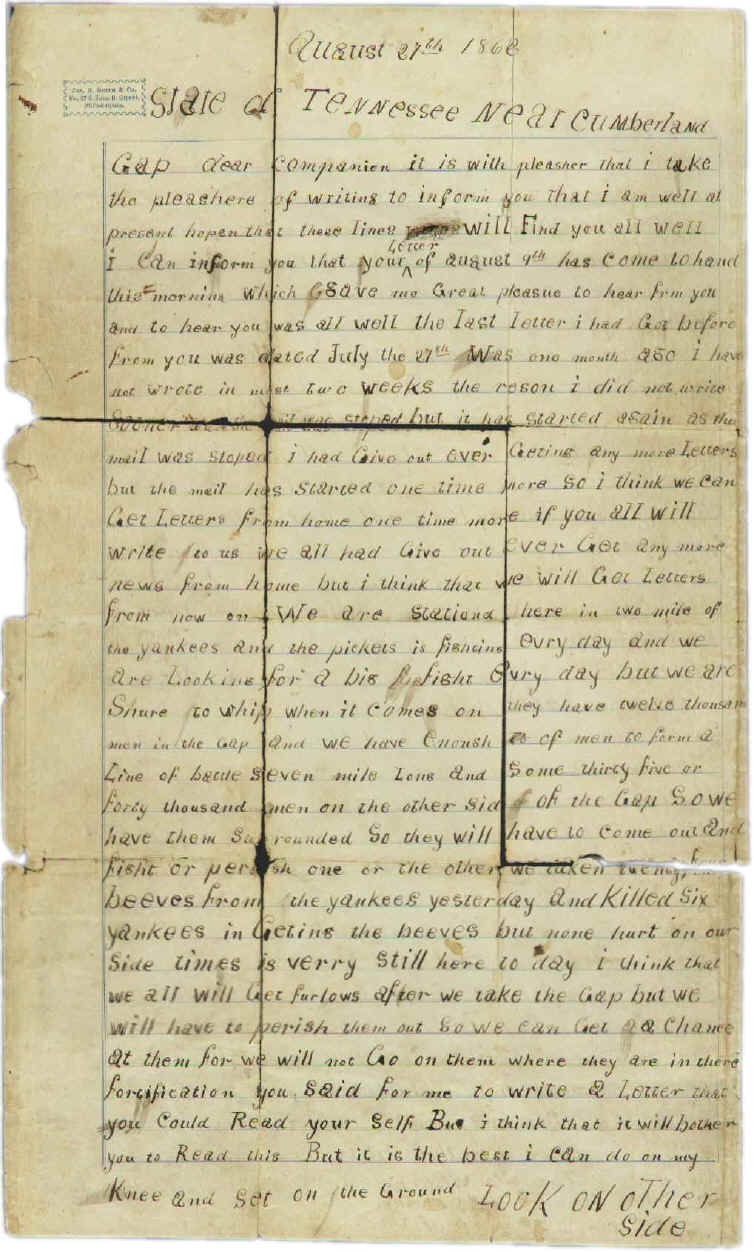 August 27th 186
Jas. B. Smith & Co.
State of Tennessee Near Cumberland
Gap dear Companion it is with pleasher that i take
the pleashere of writing to inform you that i am well at
present hopen that these lines will Find you all well
Letter
i Can inform you that your ^ of august 9th has come to hand
this morning Which Gave me Great pleasue to hear frm you
and to hear you was all well the last letter i had Got before
from you was dated July the 27th Was one month ago i have
not wrote in most two weeks the reson i did not write
Sooner mail was stoped but it has started again as the
mail was stoped i had Give out over Geting any more Letters
but the mail has Started one time more So i think we can
Get Letters from home one time more if you all will
write to us we all had Give out ever Get any more
news from home but i think that we will Get Letters
from now on We are Stationd here in two mile of
the yankees and the pickets is fighting evry day and we
are Looking for a big fight Evry day but we are
Shure to whip when it comes on they have twelve thousam
men in the Gap and we have Enough of men to form a
Line of battle Seven mile Long and Some thirty five or
forty thousand men on the other Sid of the Gap So we
have them Surrounded So they will have to come out and
fight or perish one or the other we taken twenty
beeves from the yankees yesterday and Killed Six
yankees in Geting the beeves but none hurt on our
Side times is verry Still here to day i think that
we all will Get furlows after we take the Gap but we
will have to perish them out So we can Get a Chance
at them for we will not Go on them where they are in there
fortification you Said for me to write a Letter that
you Could Read your Self But i think that it will bother
you to Read this But it is the best i can do on my
Knee and Set on the Ground Look on other
Side